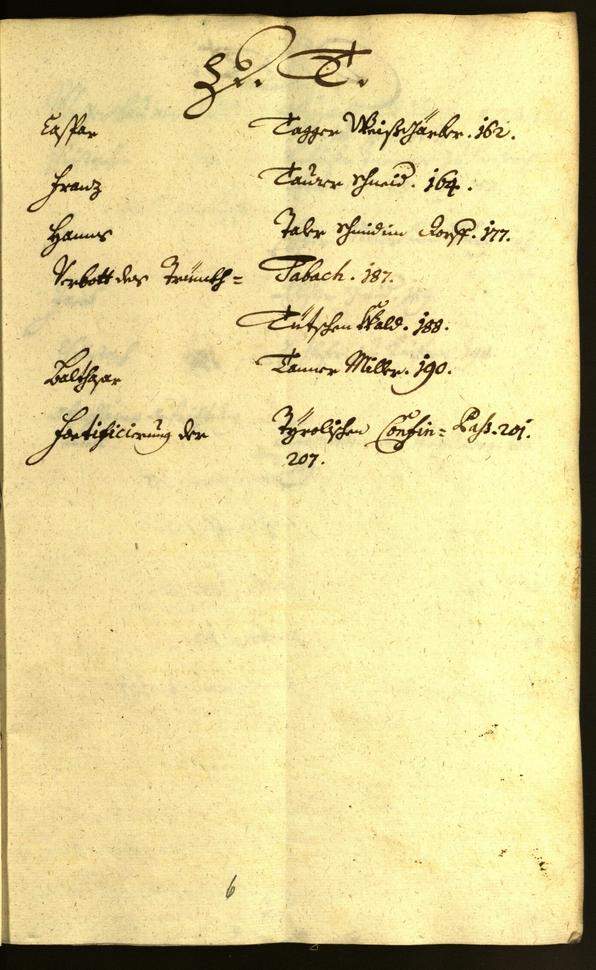 T.
Caspar Tagger Weißgärber. 162.
Franz Taurer Schneid. 164.
Hanns Taler Schmid im 177.
Verbott des Trünckh= Tabach. 187.
Tütschen Wald. 188.
Balthasar Tanner Miller. 190.
Fortificierung der Tyrolischen Confin= Päß. 201.
207.
6